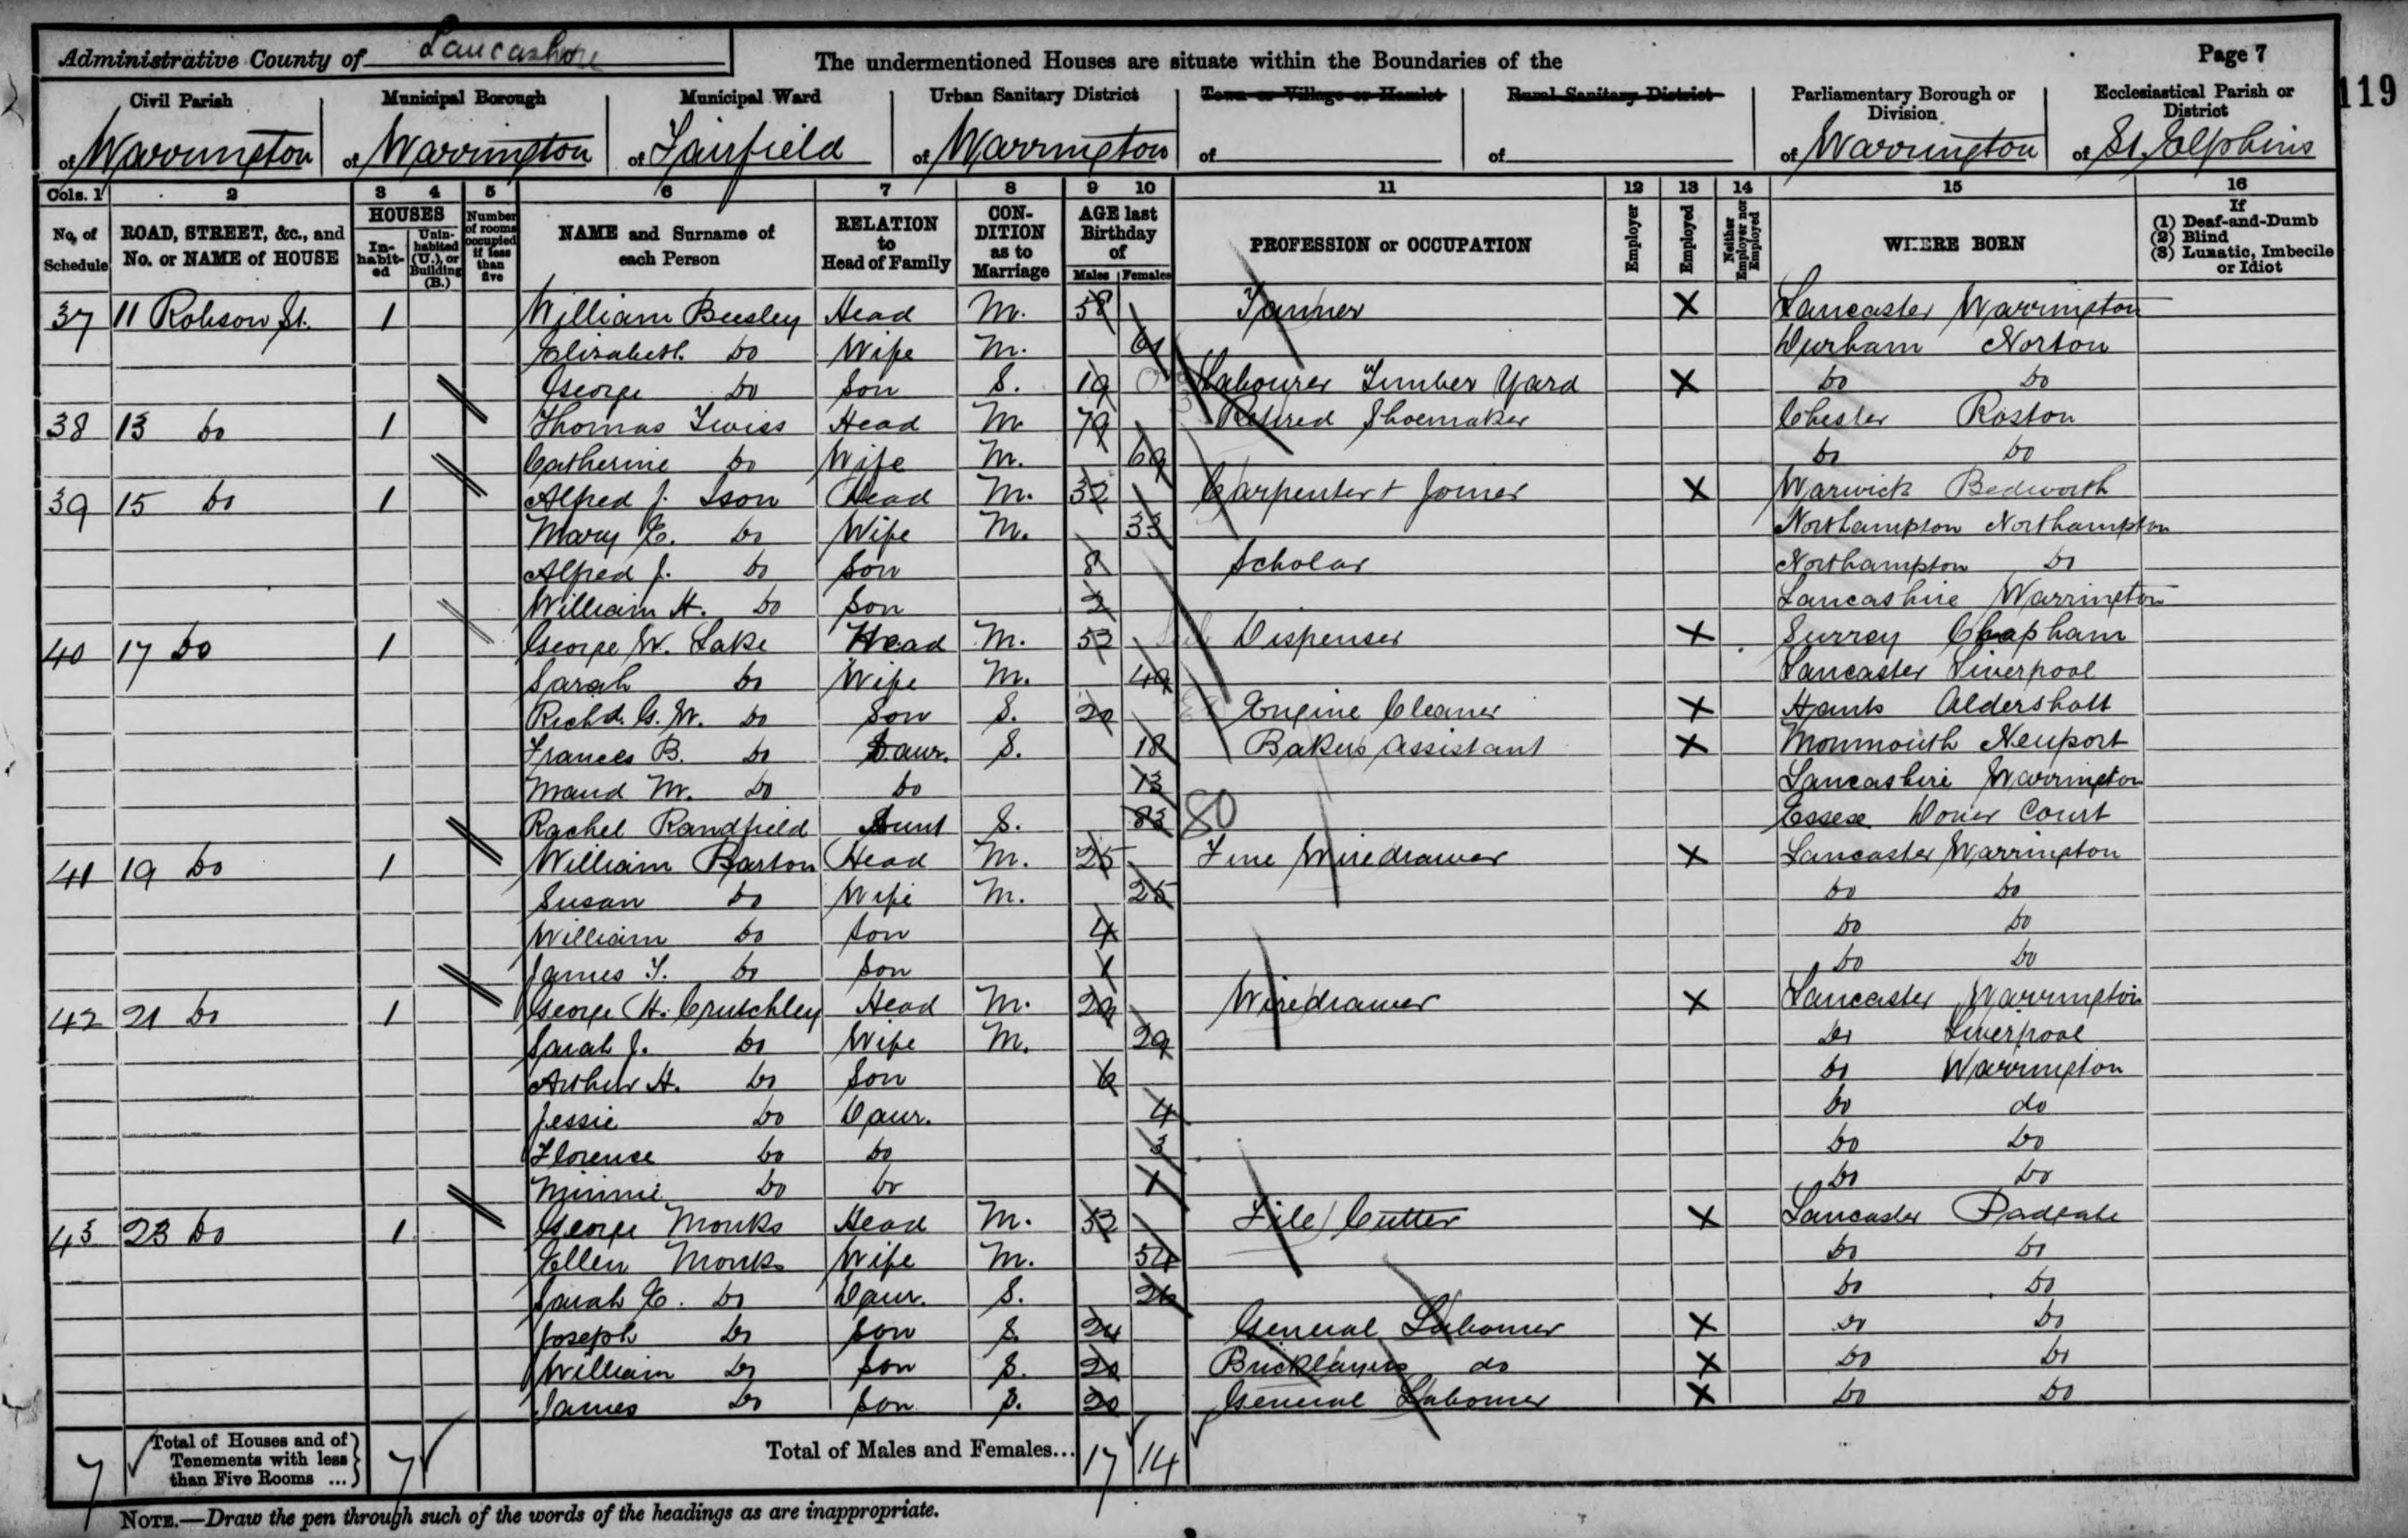 Administrative County of Lancashire The undermentioned Houses are situate within the Boundaries of the Page 7
119
Civil Parish Municipal Borough Municipal Ward Urban Sanitary District Town or Village or Hamlet Rural Sanitary District Parliamentary Borough or Division Ecclesiastical Parish or District
of Warrington of Warrington of Fairfield of Warrington of of of Warrington of St. Elphins
Cols. 1 2 3 4 5 6 7 8 9 10 11 12 13 14 15 16
No. of Schedule ROAD, STREET, &c., and No. or NAME of HOUSE HOUSES Inhabited Uninhabited (U.), or Building (B.) Number of rooms occupied if less than five NAME and Surname of each Person RELATION to Head of Family CONDITION as to Marriage AGE last Birthday of Males Females PROFESSION or OCCUPATION Employer Employed Neither Employer nor Employed WHERE BORN If (1) Deaf-and-Dumb (2) Blind (3) Lunatic, Imbecile or Idiot
37 11 Robson St. 1 William Beesley Head M. 58 Tanner X Lancaster Warrington
Elizabeth Do Wife M. 61 Durham Norton
George Do Son S. 19 Labourer Timber Yard X Do Do
38 13 Do 1 Thomas Twiss Head M 79 Retired Shoemaker Chester Roston
Catherine Do Wife M. 69 Do Do
39 15 Do 1 Alfred J. Ison Head M. 32 Carpenter + Joiner X Warwick Bedworth
Mary E. Do Wife M. 33 Northampton Northampton
Alfred J. Do Son 8 Scholar Northampton Do
William H. Do Son 2 Lancashire Warrington
40 17 Do 1 George W. Lake Head M. 52 Dispenser X Surrey Clapham
Sarah Do Wife M. 49 Lancaster Liverpool
Richd. G. W. Do Son S. 20 Engine Cleaner X Hants Aldershott
Frances B. Do Daur. S. 18 Bakers Assistant X Monmouth Newport
Maud M. Do Do 13 Lancashire Warrington
Rachel Randfield Aunt S. 83 80 Essex Dover Court
41 19 Do 1 William Barton Head M. 25 Fine Wiredrawer X Lancaster Warrington
Susan Do Wife M. 25 Do Do
William Do Son 4 Do Do
James T. Do Son 1 Do Do
42 21 Do 1 George H. Crutchley Head M. 29 Wiredrawer X Lancaster Warrington
Sarah J. Do Wife M. 29 Do Liverpool
Arthur H. Do Son 6 Do Warrington
Jessie Do Daur. 4 Do do
Florence Do Do 3 Do Do
Minnie Do Do 1 Do Do
43 23 Do 1 George Monks Head M. 52 File Cutter X Lancaster Padgate
Ellen Monks Wife M. 54 Do Do
Sarah E. Do Daur. S. 26 Do Do
Joseph Do Son S. 24 General Labourer X Do Do
William Do Son S. 20 Bricklayers do X Do Do
James Do Son S. 20 General Labourer X Do Do
7 Total of Houses and of Tenements with less than Five Rooms ... 7 Total of Males and Females... 17 14
NOTE.—Draw the pen through such of the words of the headings as are inappropriate.